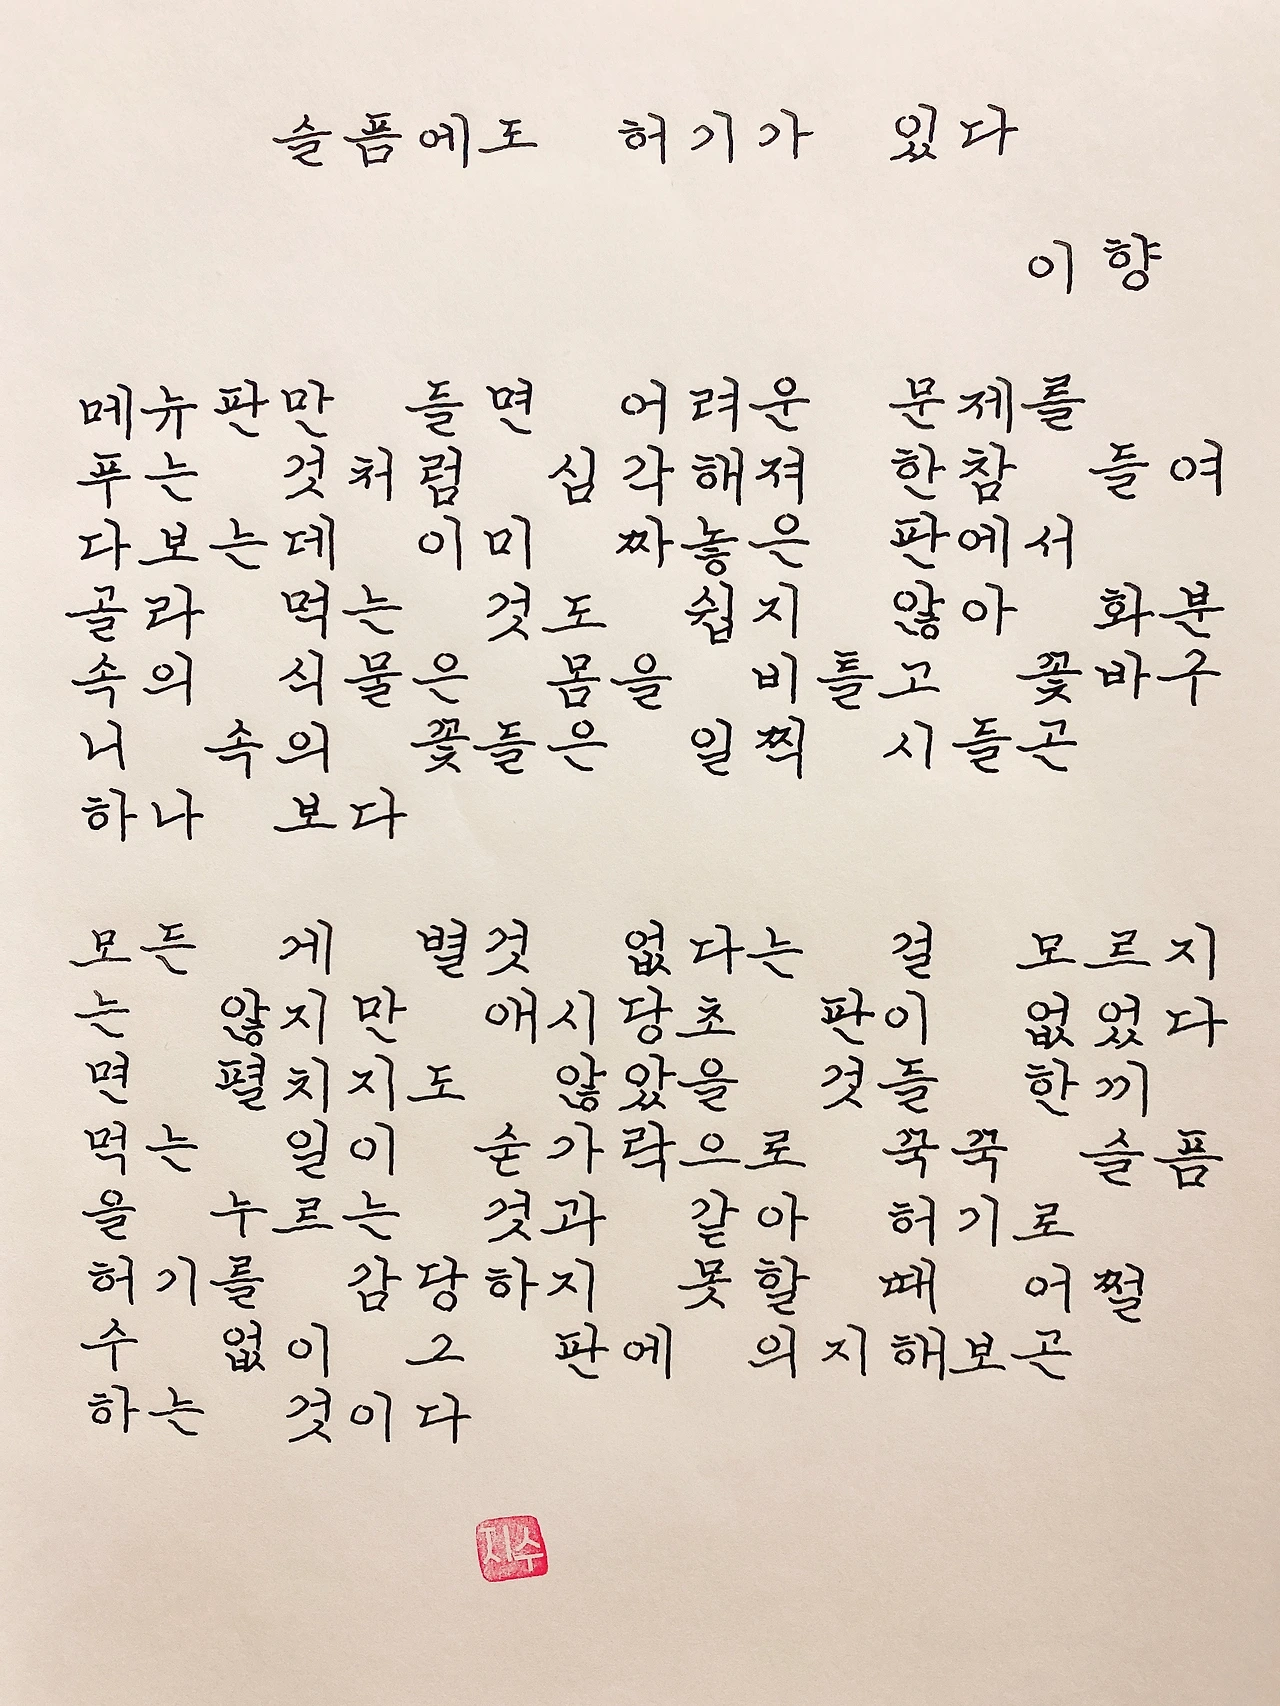 슬픔에도 허기가 있다
이향
메뉴판만 들면 어려운 문제를
푸는 것처럼 심각해져 한참 들여
다보는데 이미 짜놓은 판에서
골라 먹는 것도 쉽지 않아 화분
속의 식물은 몸을 비틀고 꽃바구
니 속의 꽃들은 일찍 시들곤
하나 보다
모든 게 별것 없다는 걸 모르지
는 않지만 애시당초 판이 없었다
면 펼치지도 않았을 것들 한끼
먹는 일이 숟가락으로 꾹꾹 슬픔
을 누르는 것과 같아 허기로
허기를 감당하지 못할 때 어쩔
수 없이 그 판에 의지해보곤
하는 것이다
지수